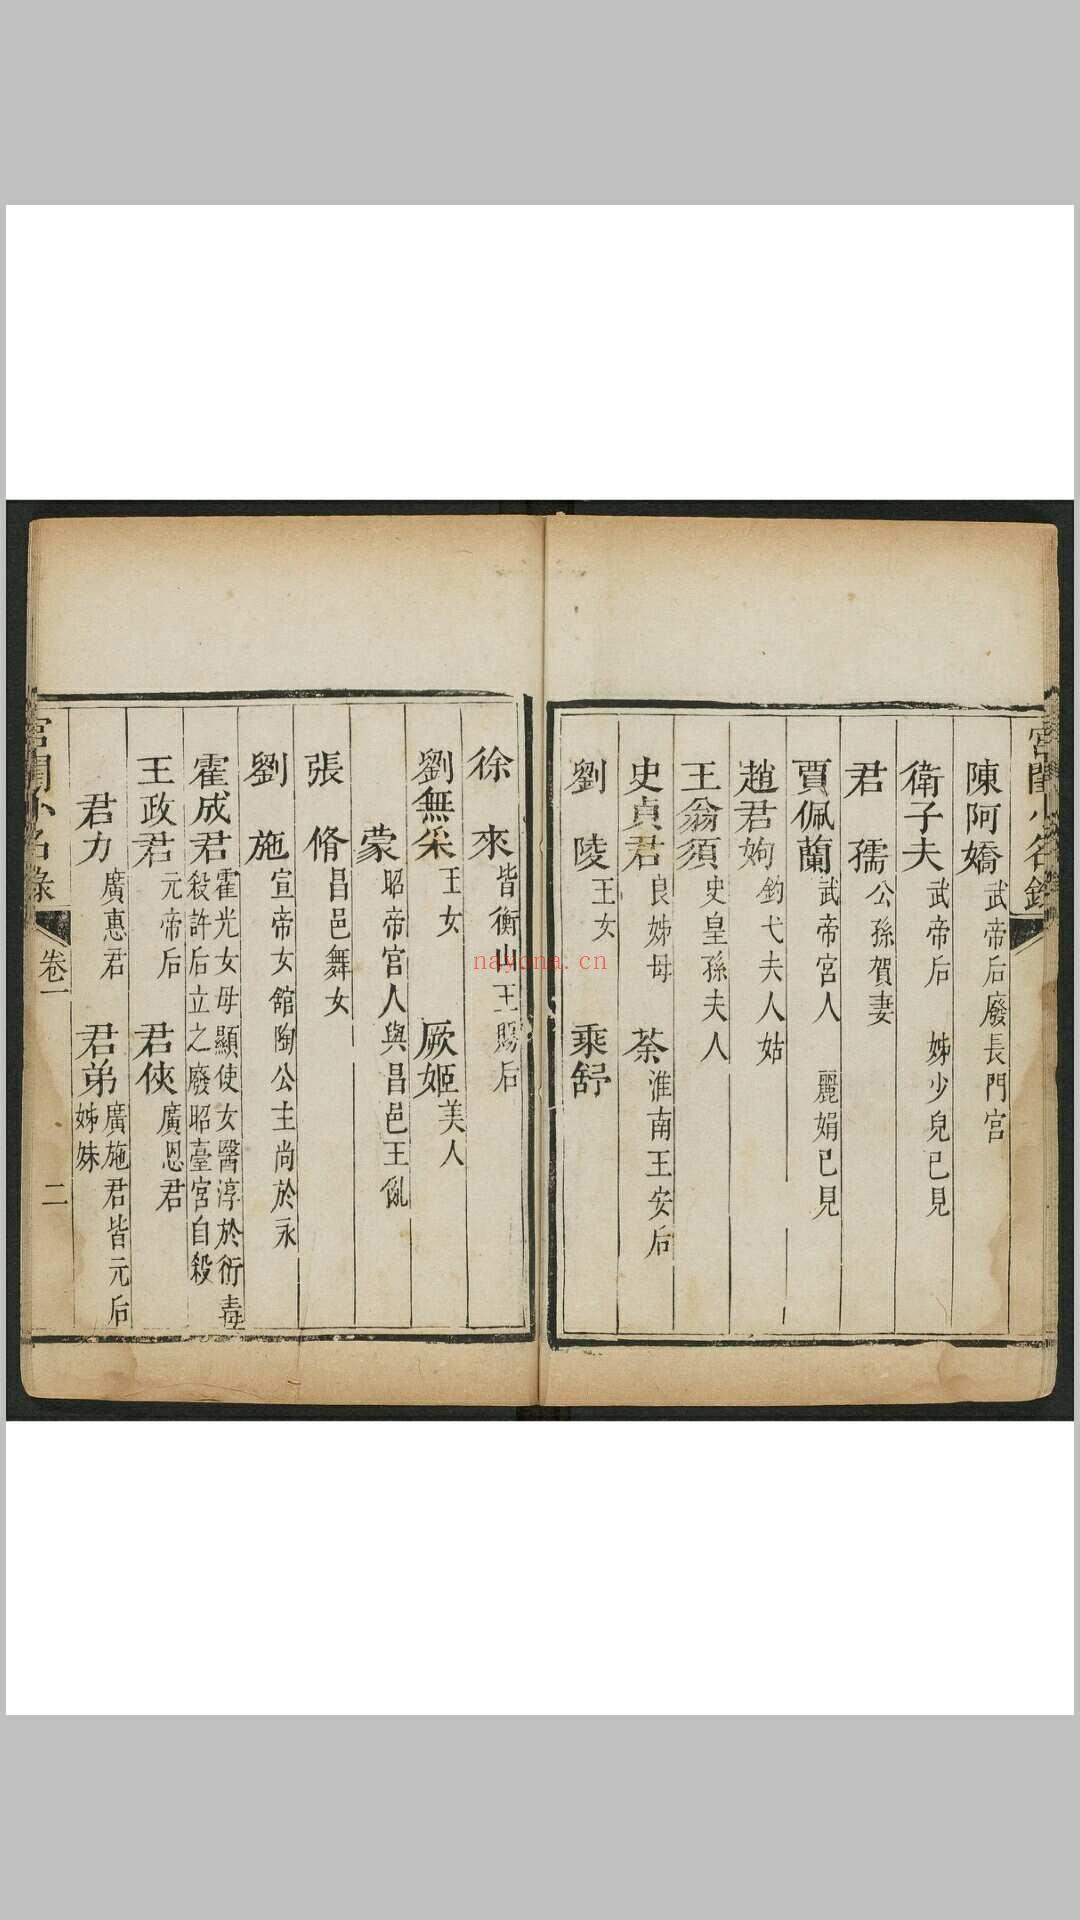 宮閨小名錄
陳阿嬌 武帝后廢長門宮
衛子夫 武帝后 姊少兒已見
君孺 公孫賀妻
賈佩蘭 武帝宮人 麗娟已見
趙君姁 鈎弋夫人姑
王翁須 史皇孫夫人
史貞君 良姊母 荼 淮南王安后
劉陵 王女 乘舒
徐來 皆衡山王賜后
劉無采 王女 厥姬 美人
蒙 昭帝宮人與昌邑王亂
張脩 昌邑舞女
劉施 宣帝女館陶公主尚於永
霍成君 霍光女母顯使女醫淳於衍毒
殺許后立之廢昭臺宮自殺
王政君 元帝后 君俠 廣恩君
君力 廣惠君 君弟 廣施君皆元后
姊妹
宮閨小名錄 卷一 二
nayona.cn